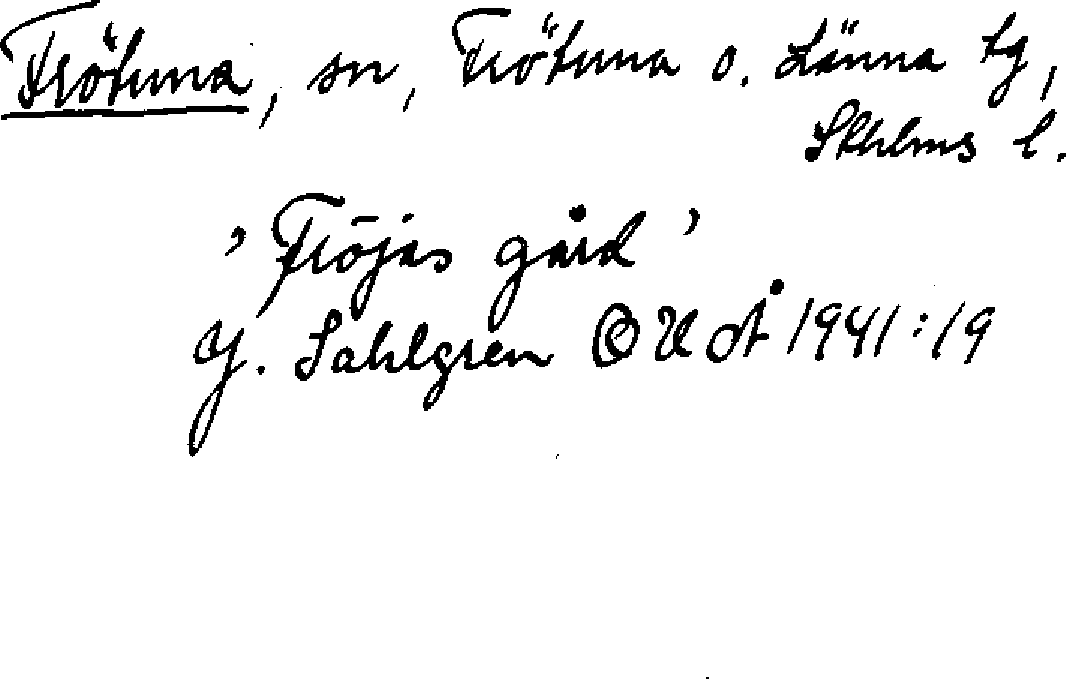 Frötuna, sn, Frötuna o. Länna tg,
Sthlms l.
'Fröjas gård'
J. Sahlgren OUoÅ 1941:19